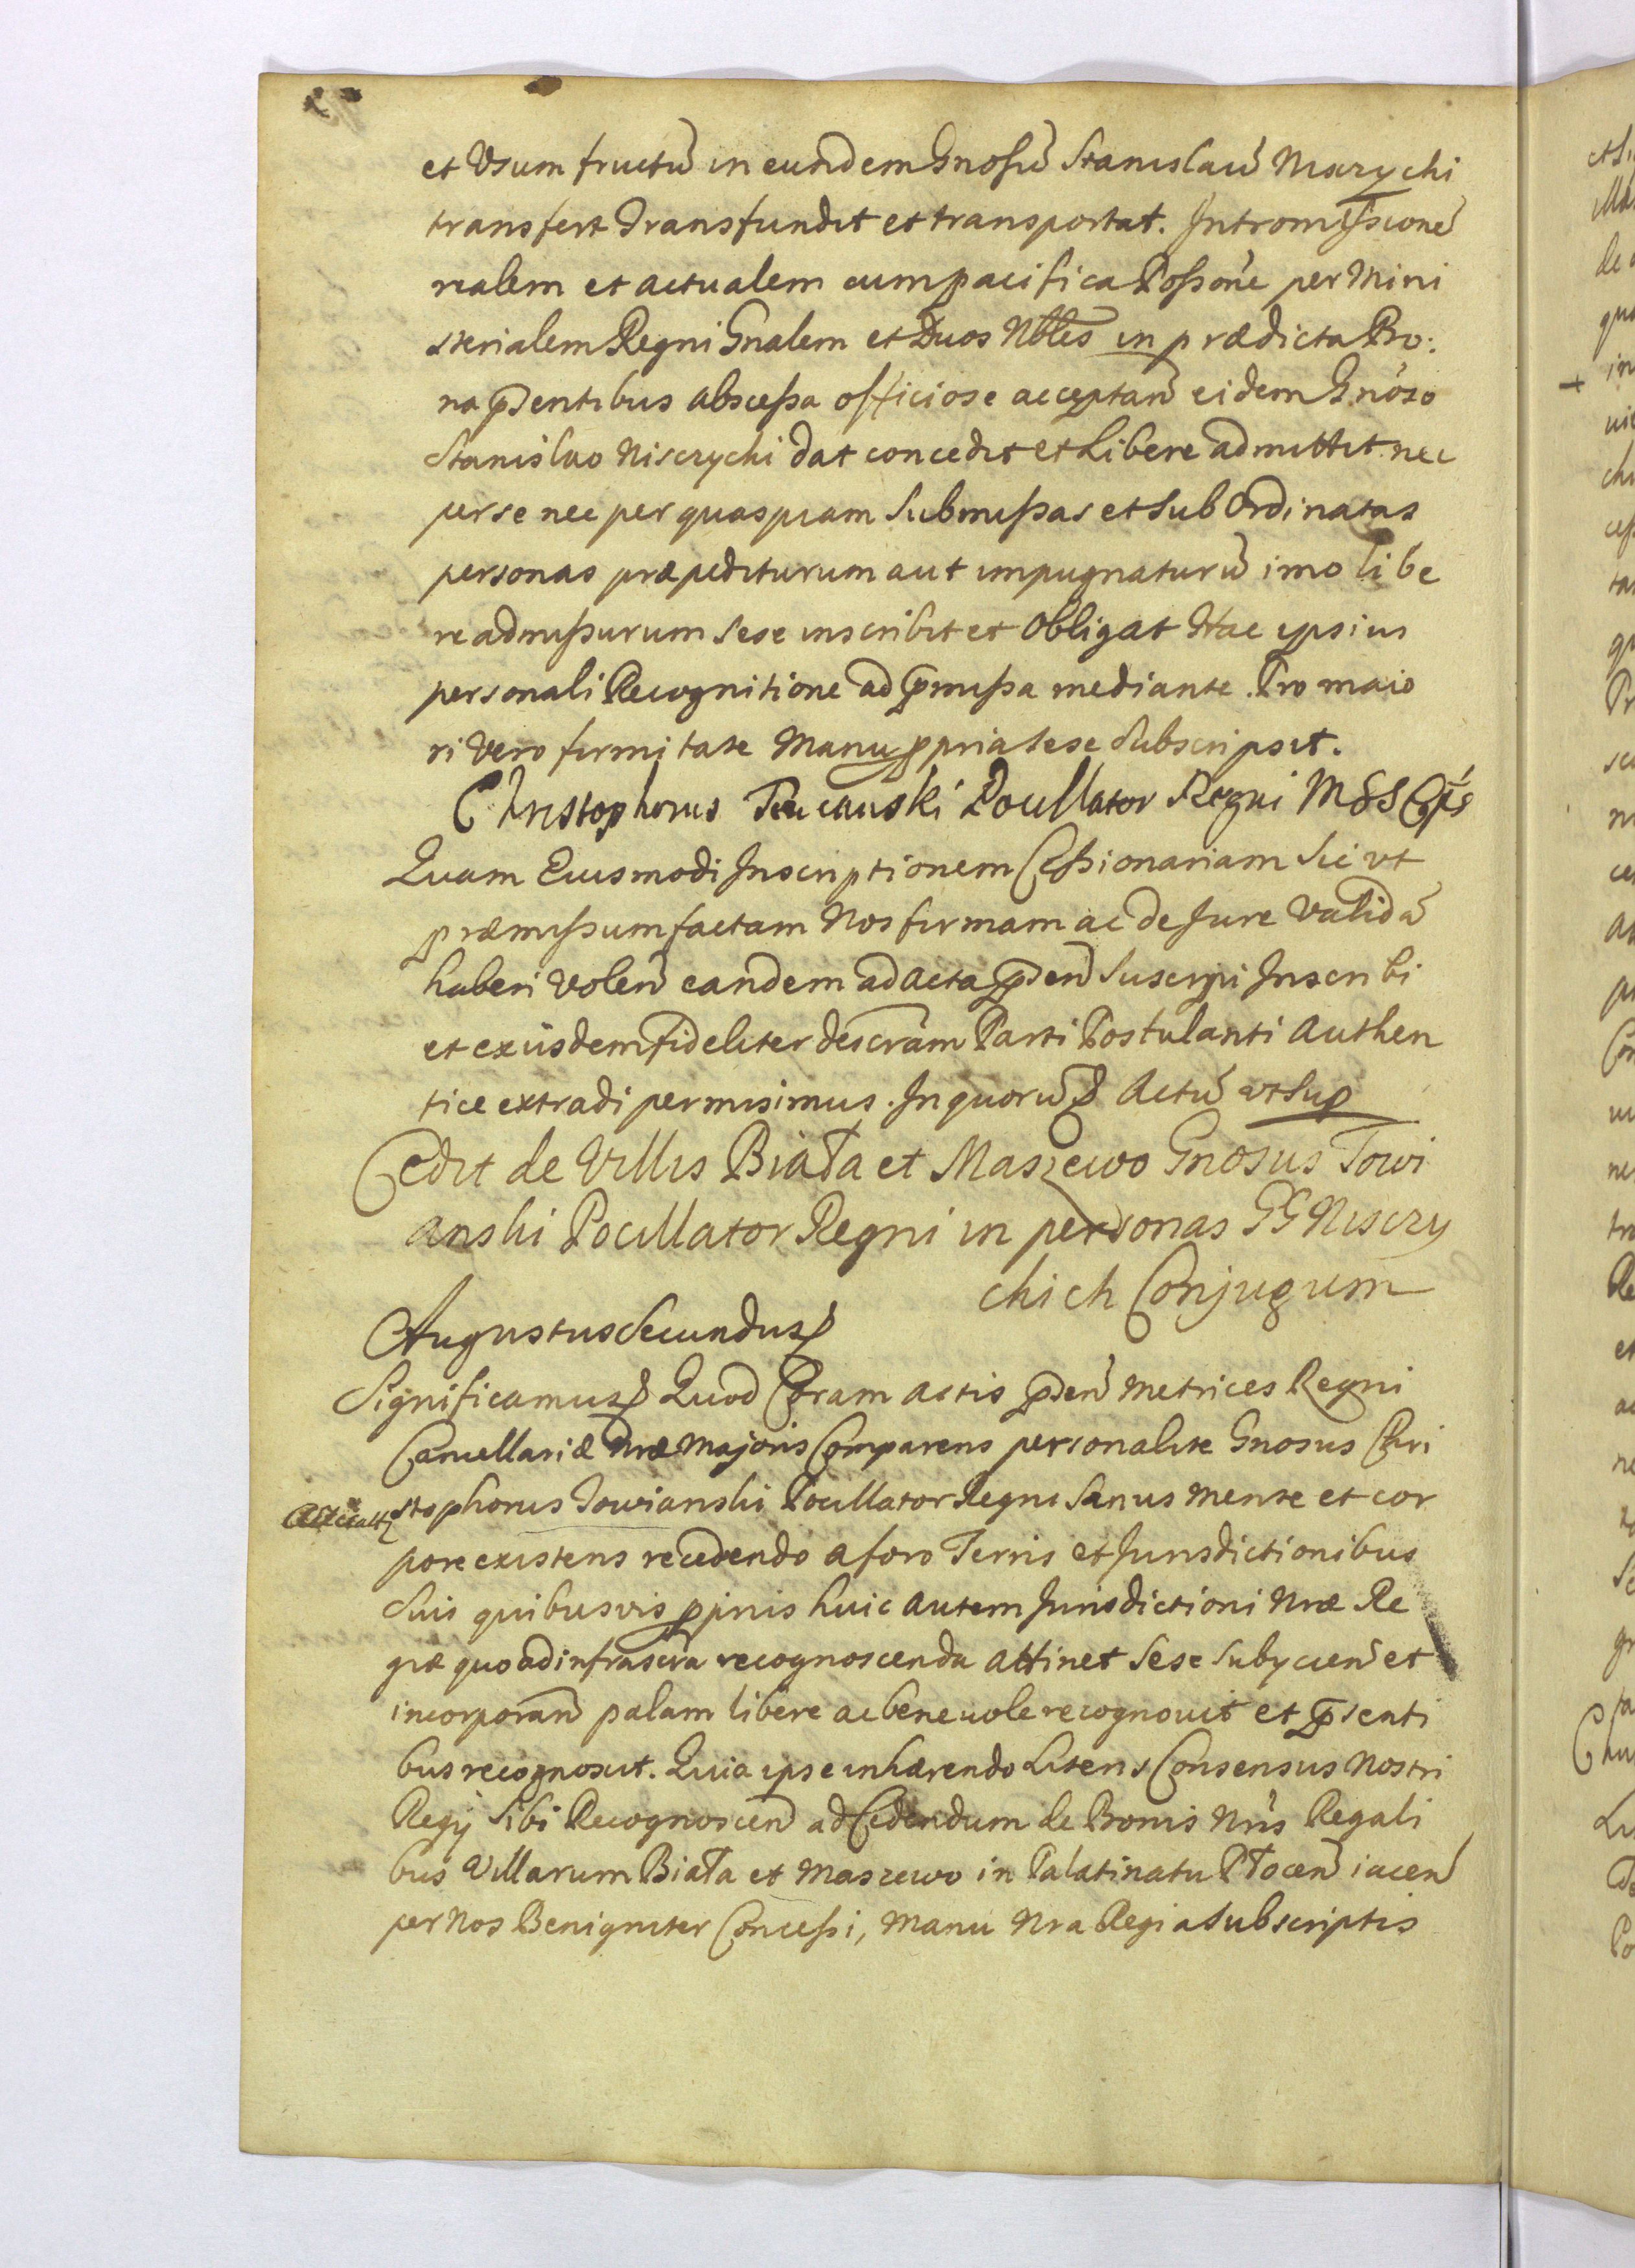 et Vsum fructū in eundem Gnosū Stanislaū Nisczychi
transfert Transfundit et transportat. Intromissionē
realem et actualem cum pacifica Possōne per Mini
sterialem Regni Gnalem et Duos Nbles in prædicta Bo:
na pntibus abscessa officiose acceptan eidem Gnoso
Stanislao Nisczychi dat concedit et Libere admittit nec
per se nec per quaspiam Submissas et Sub Ordinatas
personas præpediturum aut impugnaturū imo libe
re admissurum Sese inscribit et Obligat Hac ipsius
personali Recognitione ad præmissa mediante. Pro maio
ri Vero firmitate Manu ppria sese Subscripsit.
Christophorus Towianski Pocillator Regni
Quam Eiusmodi Inscriptionem Cessionariam Sic vt
præmissum factam Nos firmam ac de Jure Validā
haberi Volen eandem ad acta pñ Suscipi Inscribi
et ex iisdem fideliter descram Parti Postulanti Authen
tice extradi permisimus. In quorū Actū vt Sup
Cedit de Villis Biała et Maszewo Gnosus Towi
anski Pocillator Regni in personas GG Niszczy
chich Conjugum
Augustus Secundus
Significamus Quod Coram actis pñ Metrices Regni
Cancellariæ Nræ Majoris Comparens personalite Gnosus Chri
stophorus Towianski Pocillator Regni Sanus mente et cor
pore existens recedendo a foro Terris et Jurisdictionibus
Suis quibusvis ppriis huic autem Jurisdictioni Nræ Re
giæ quo ad infrascra recognoscenda attinet Sese Subycien et
incorporan palam libere ac benevole recognovit et præsenti
bus recognoscit. Quia ipse inhærendo Literis Consensus Nostri
Regij Sibi Recognoscen ad Cedendum de Bonis Nris Regali
bus Villarum Biała et Maszewo in Palatinatu Płocen iacen
per Nos Benigniter Concessi, Manu Nra Regia Subscriptis